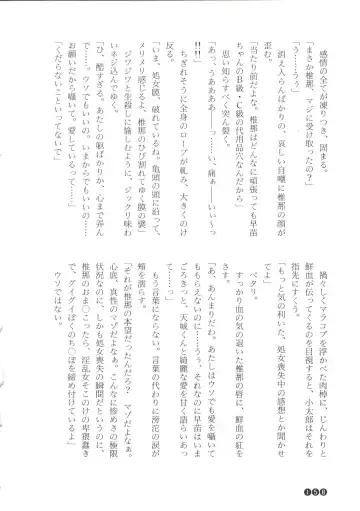 感情の全てが凍りつき、固まる。
「まさか椎那、マジに受け取ったの？」
「う……ううぅ」
　消え入らんばかりの、哀しい自嘲に椎那の顔が
歪む。
「当たり前だよな。椎那はどんなに頑張っても早苗
ちゃんのＢ級・Ｃ級の代用品穴なんだから」
　思い知らすべく突ん裂く。
「あっ、うあああぁーっ……い、痛ぁーーいぃ〜っ
!!!!」
　ちぎれそうに全身のロープが軋み、大きくのけ
反る。
「いま、処女膜、破れているね。亀頭の頭に沿って、
メリメリ感じるよ、椎那のひび割れてゆく膜の褒」
　ジワジワと生殺しに愉しむように、ジックリ味わ
いネジ込んでゆく。
「ひ、酷すぎる。あたしの躯ばかりか、心まで弄ん
で……。ウソでもいいの。いまからでもいいの……
だからお願い、嘯いて。愛しているって……」
「くだらないこといってないで」
　禍々しくマラコブを浮かべた肉棹に、じんわりと
鮮血が伝ってくるのを目視すると、小太郎はそれを
指先にすくう。
「もっと気の利いた、処女喪失中の感想とか聞かせ
てよ」
　ベタリ。
　すっかり血の気の退いた椎那の唇に、鮮血の紅を
さす。
「あ、あんまりよ。あたしはウソでも愛を囁いて
もらえないのに……うぅ。それなのに早苗はいま
ごろきっと、天城くんと綺麗な愛を甘く語らいあっ
て……」
　もう言葉にならない。言葉の代わりに滂沱の涙が
頬を濡らす。
「それが椎那の本望だったんだろ？　マゾだよなぁ。
心底、真性のマゾだよなぁ。こんなに惨めさの極限
状況なのに、しかも処女喪失の瞬間だというのに、
椎那のおま〇こったら、淫乱女そこのけの卑猥蠢き
で、グイグイぼくのち〇ぽを締め付けているよ」
　ウソではない。
150